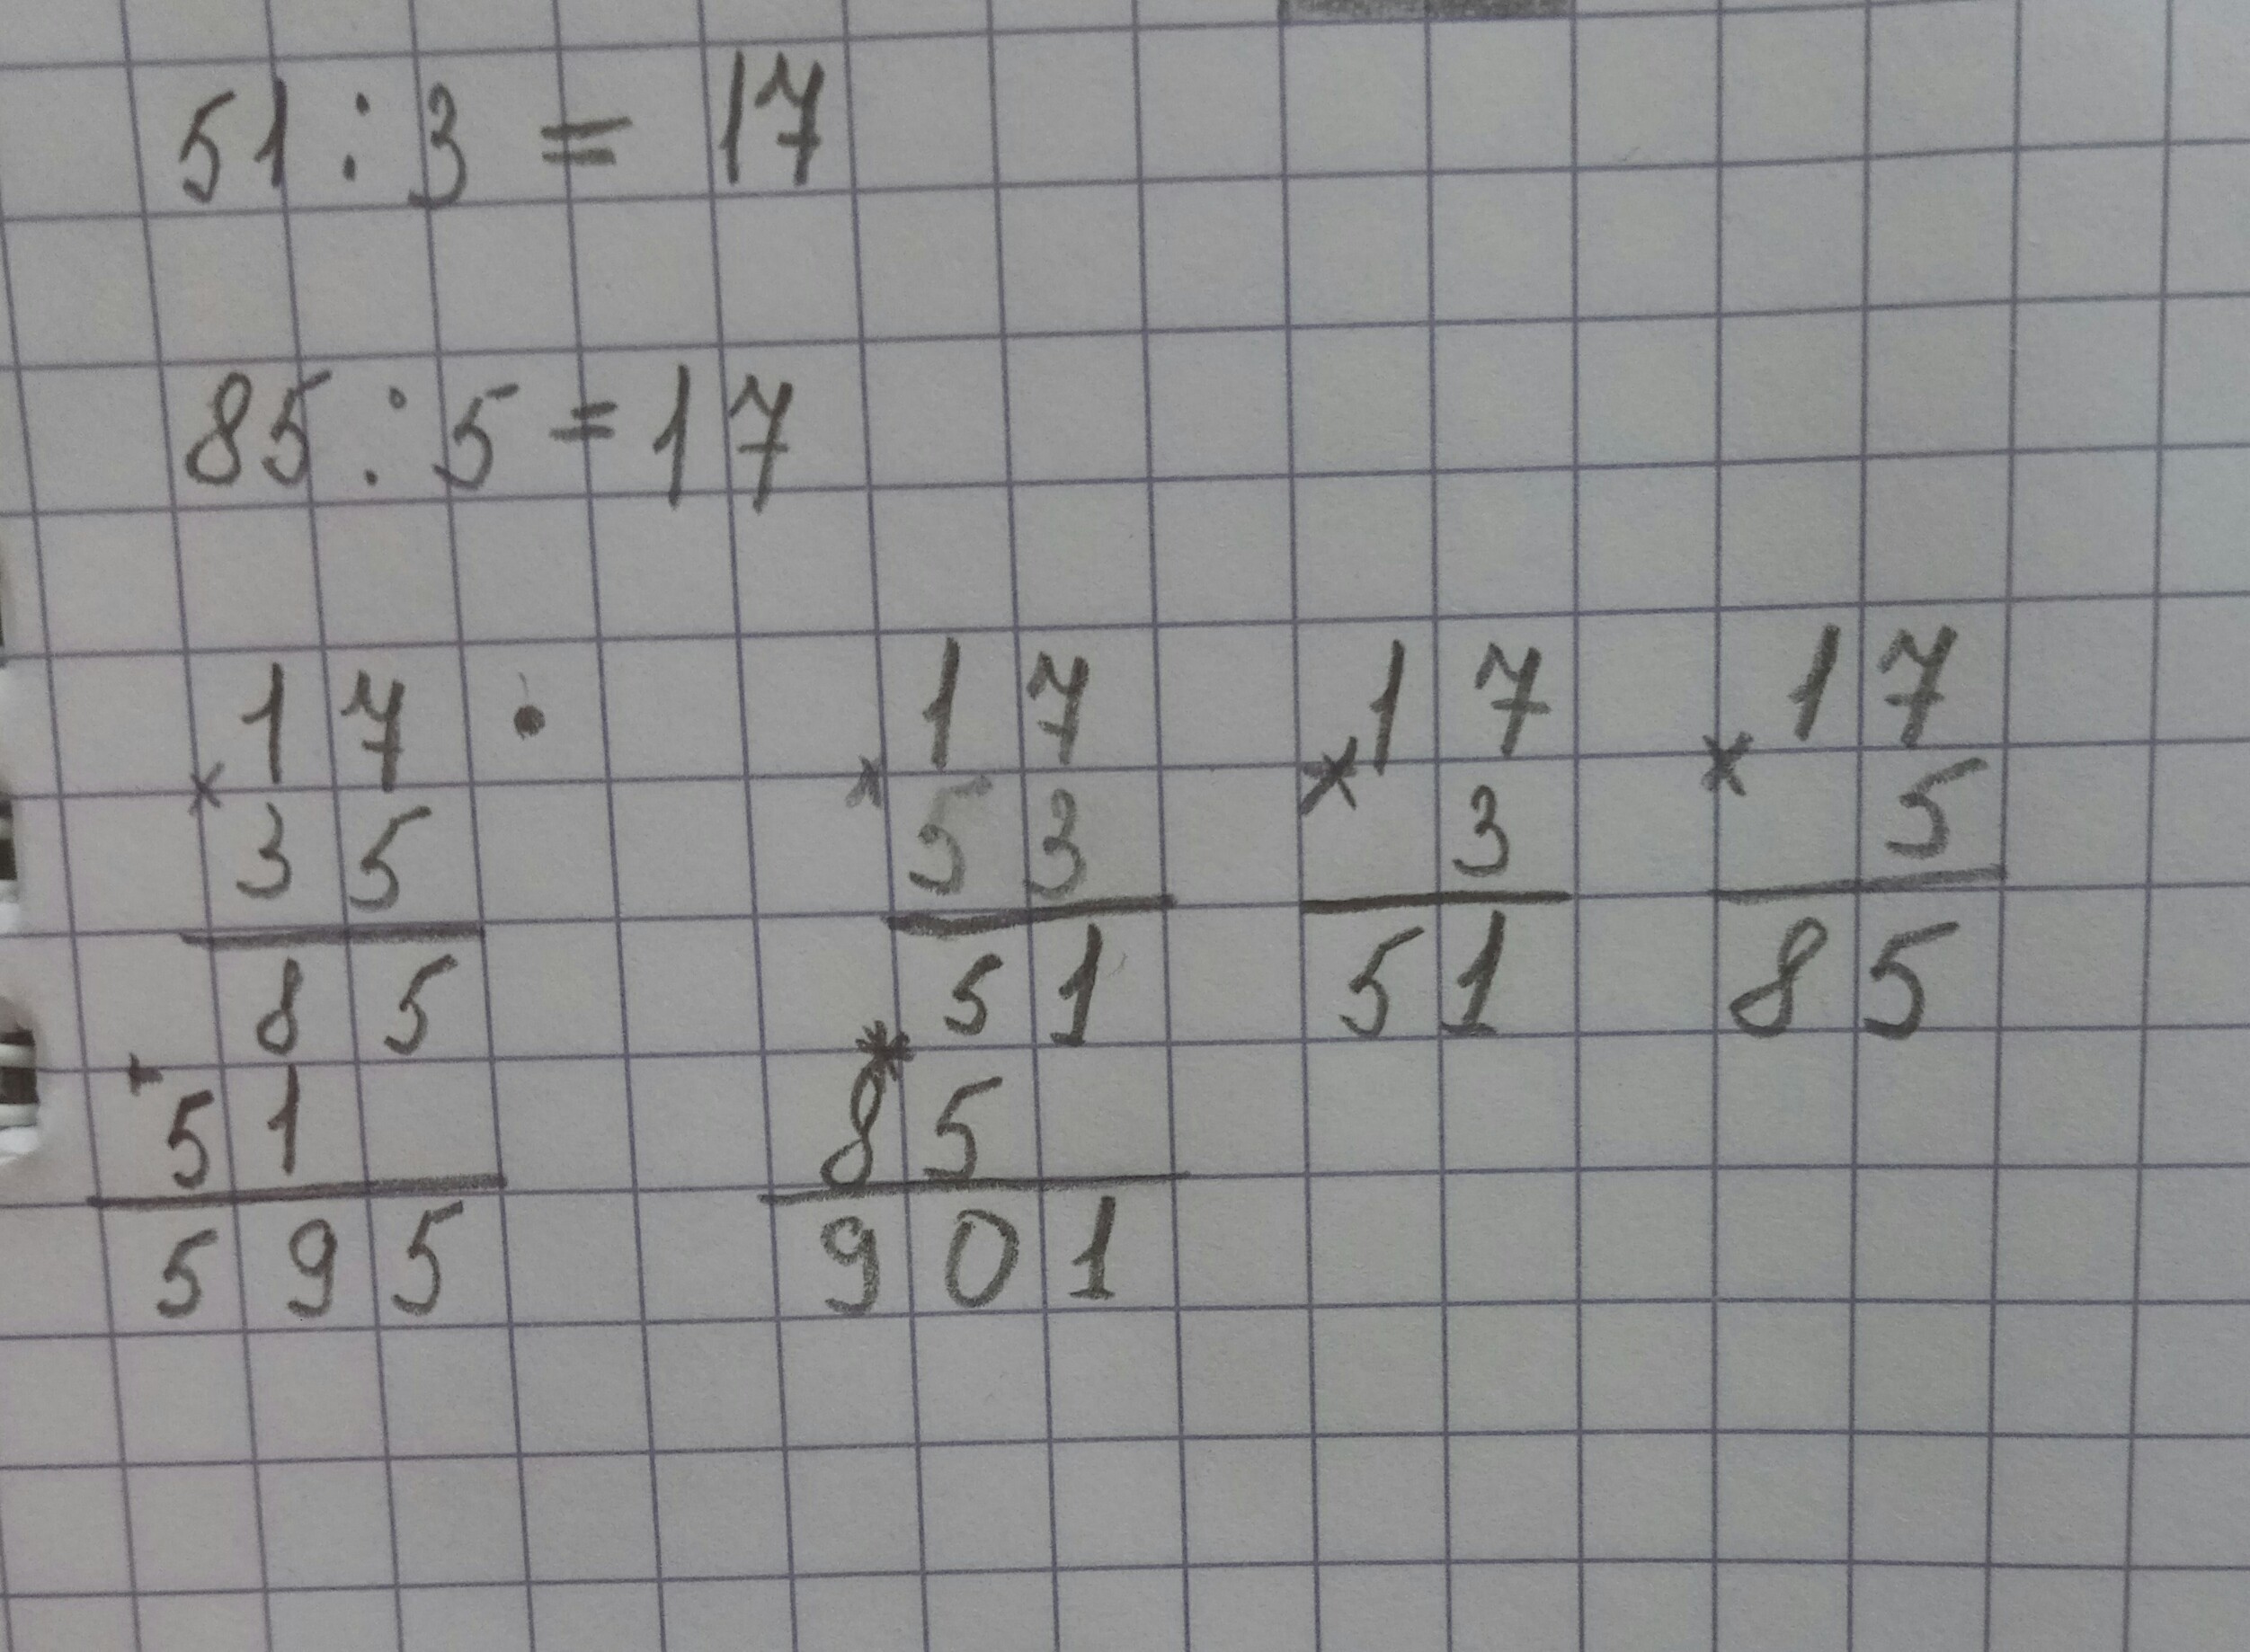 51 : 3 = 17
85 : 5 = 17
17 · 17 17 17
× 35 × 53 × 3 × 5
85 51 51 85
+ 51 * 85
595 901